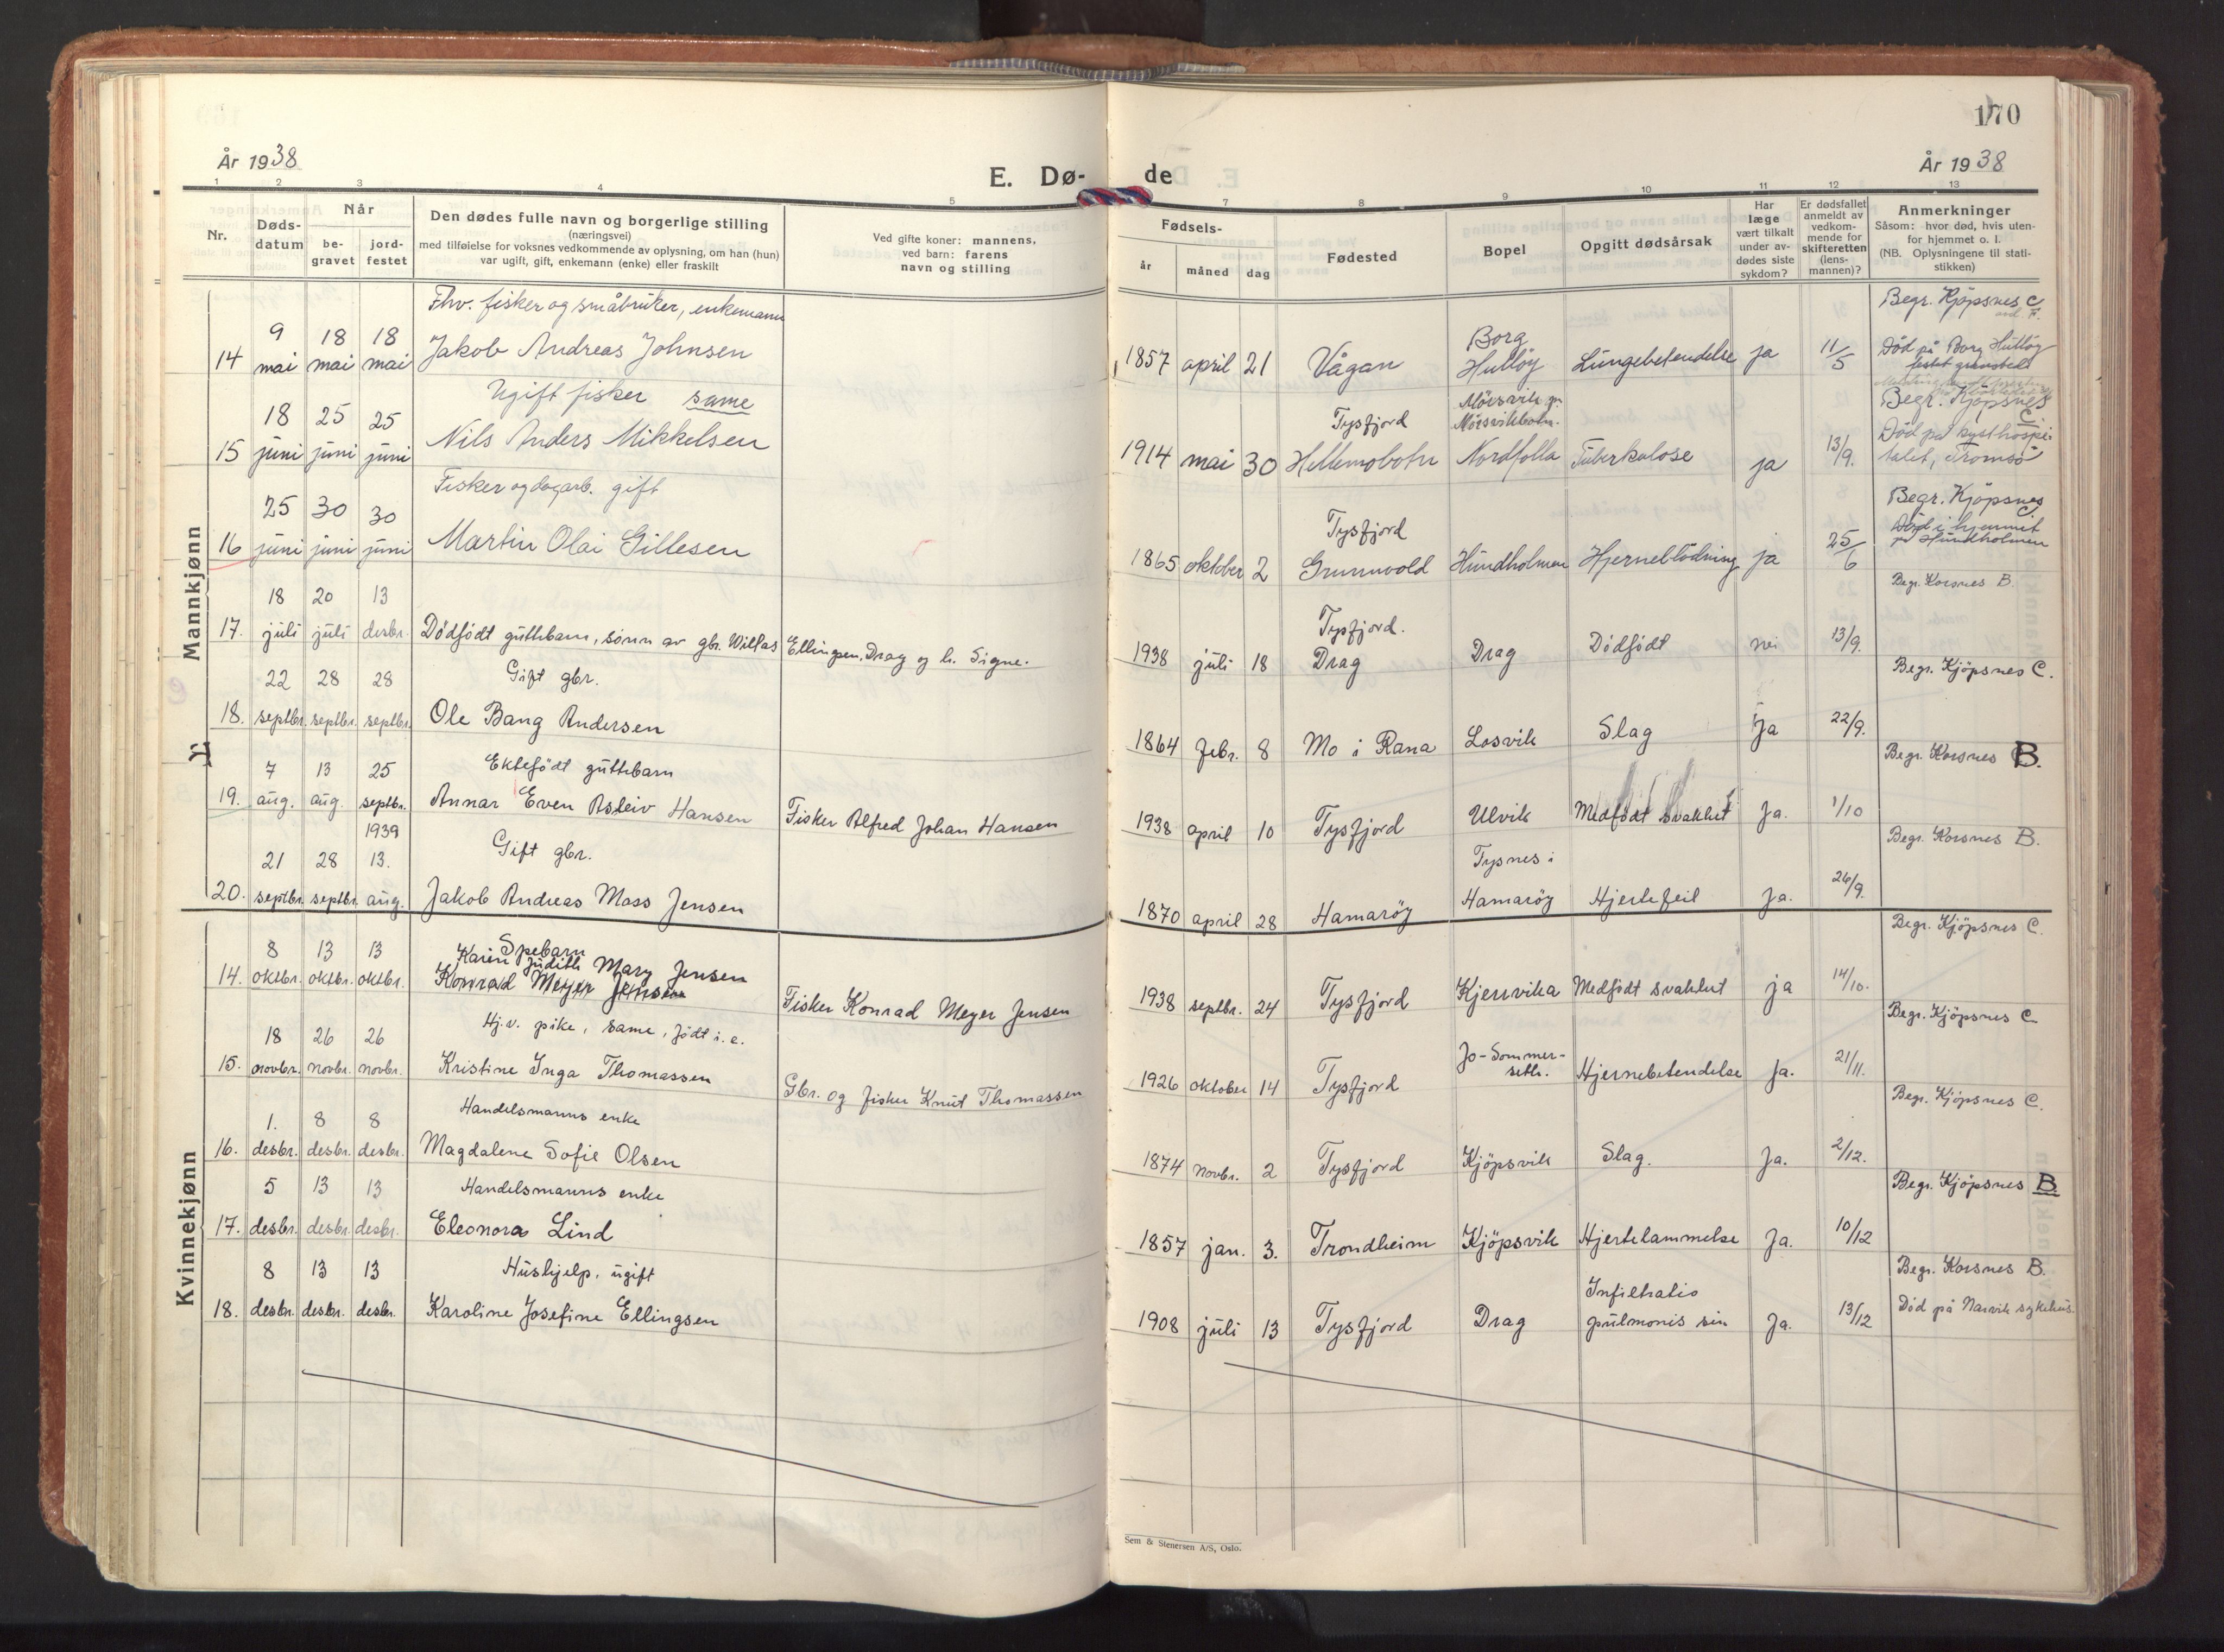 170
År 1938
E. Dø-
de
År 1938
1 2 3 4 5 7 8 9 10 11 12 13
Nr.
Døds-
datum
Når
be-
gravet
jord-
festet
Den dødes fulle navn og borgerlige stilling
(næringsvei)
med tilføielse for voksnes vedkommende av oplysning, om han (hun)
var ugift, gift, enkemann (enke) eller fraskilt
Ved gifte koner: mannens,
ved barn: farens
navn og stilling
Fødsels-
år
måned
dag
Fødested
Bopel
Opgitt dødsårsak
Har
læge
vært tilkalt
under av-
dødes siste
sykdom?
Er dødsfallet
anmeldt av
vedkom-
mende for
skifteretten
(lens-
mannen)?
Anmerkninger
Såsom: hvor død, hvis uten-
for hjemmet o. l.
(NB. Oplysningene til stati-
stikken)
Mannkjønn
Fhv. fisker og småbruker, enkemann
Begr. Kjöpsnes C
14 9 mai 18 mai 18 mai Jakob Andreas Johnsen 1857 april 21 Vågan Borg Hulløy Lungebetendelse ja 11/5 Död på Borg Hulløy
Ugift fisker same
Begr. Kjöpsnes C.
15 18 juni 25 juni 25 juni Nils Anders Mikkelsen 1914 mai 30 Tysfjord Hellemobotn Mörsvik Mörsvikbotn. Nordfolla Tuberkulose ja 13/9. Död på kysthospi-
talet, Tromsö
Fisker og dagarb. gift
Begr. Kjöpsnes C.
16 25 juni 30 juni 30 juni Martin Olai Gillesen 1865 oktober 2 Tysfjord Grunnvold Hundholmen Hjerneblödning ja 25/6 Död i hjemmet
på Hundholmen
Begr. Korsnes B.
17. 18 juli 20 juli 13 desbr. Dödfödt guttebarn, sönn av gbr. Willas Ellingsen, Drag og h. Signe. 1938 juli 18 Tysfjord. Drag Drag Dödfödt nei 13/9.
Gift gbr.
Begr. Kjöpsnes C.
18. 22 septbr. 28 septbr. 28 septbr. Ole Bang Andersen 1864 febr. 8 Mo i Rana Losvik Slag Ja 22/9.
Ektefödt guttebarn
Begr. Korsnes B.
19. 7 aug. 13 aug. 25 septbr. Annar Even Asleiv Hansen Fisker Alfred Johan Hansen 1938 april 10 Tysfjord Ulvik Medfödt svakhet Ja. 1/10
Gift gbr.
Begr. Korsnes B.
20. 21 septbr. 28 septbr. 1939 13. aug. Jakob Andreas Moss Jensen 1870 april 28 Hamaröy Tysnes i Hamaröy Hjertefeil Ja. 26/9.
Kvinnekjønn
Spebarn
Begr. Kjöpsnes C.
Karin Judith Mary Jensen
14. 8 oktbr. 13 oktbr. 13 oktbr. Konrad Meyer Jensen Fisker Konrad Meyer Jensen 1938 septbr. 24 Tysfjord Kjerrvika Medfödt svakhet ja 14/10.
Hj.v. pike, same, födt i. e.
Begr. Kjöpsnes C.
15. 18 novbr. 26 novbr. 26 novbr. Kristine Inga Thomassen Gbr. og fisker Knut Thomassen 1926 oktober 14 Tysfjord Jo-Sommer-
setb. Hjernebetendelse Ja. 21/11.
Handelsmanns enke
Begr. Kjöpsnes C.
16. 1. desbr. 8 desbr. 8 desbr. Magdalene Sofie Olsen 1874 novbr. 2 Tysfjord Kjöpsvik Slag. Ja. 2/12.
Handelsmanns enke
Begr. Kjöpsnes B.
17. 5 desbr. 13 desbr. 13 desbr. Eleonora Lind 1857 jan. 3. Trondheim Kjöpsvik Hjertelammelse Ja. 10/12
Hushjelp, ugift
Begr. Korsnes B.
18. 8 desbr. 13 desbr. 13 desbr. Karoline Josefine Ellingsen 1908 juli 13 Tysfjord Drag Infiltratio
pulmonis sin Ja. 13/12 Död på Narvik sykehus
Sem & Stenersen A/S, Oslo.